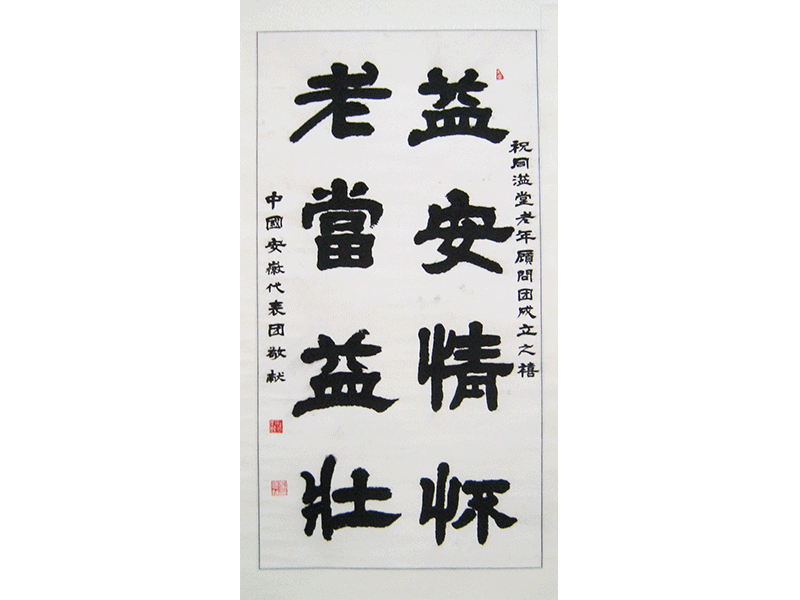 祝同溢堂老年顾問团成立之禧
益安情怀
老當益壯
中國安徽代表团敬献